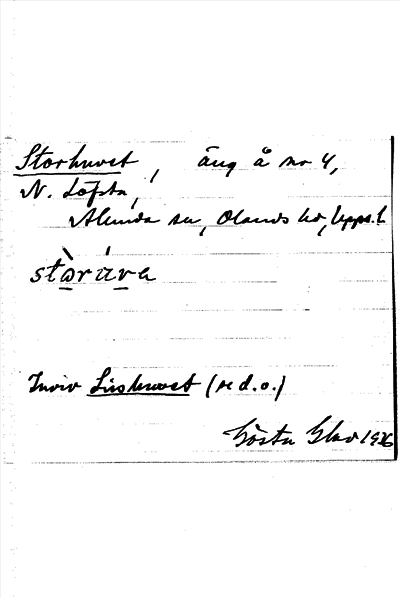 Storhuvet, äng å nr 4,
N. Löfsta,
Alunda sn, Olands hd, Upps. l.
stòrúva
Inviv Lushuvet (se d.o.)
Gösta Glad 1936